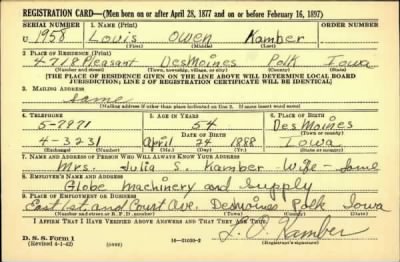 REGISTRATION CARD—(Men born on or after April 28, 1877 and on or before February 16, 1897)
SERIAL NUMBER 1. NAME (Print) ORDER NUMBER
U 1958 Louis Owen Kamber
(First) (Middle) (Last)
2. PLACE OF RESIDENCE (Print)
4718 Pleasant DesMoines Polk Iowa
(Number and street) (Town, township, village, or city) (County) (State)
[THE PLACE OF RESIDENCE GIVEN ON THE LINE ABOVE WILL DETERMINE LOCAL BOARD
JURISDICTION; LINE 2 OF REGISTRATION CERTIFICATE WILL BE IDENTICAL]
3. MAILING ADDRESS
same
[Mailing address if other than place indicated on line 2. If same insert word same]
4. TELEPHONE 5. AGE IN YEARS 6. PLACE OF BIRTH
5-7971 54 DesMoines
DATE OF BIRTH (Town or county)
4-3231 April 24 1888 Iowa
(Exchange) (Number) (Mo.) (Day) (Yr.) (State or country)
7. NAME AND ADDRESS OF PERSON WHO WILL ALWAYS KNOW YOUR ADDRESS
Mrs. Julia S. Kamber Wife - Same
8. EMPLOYER'S NAME AND ADDRESS
Globe Machinery and Supply
9. PLACE OF EMPLOYMENT OR BUSINESS
East 1st and Court Ave. Desmoines Polk Iowa
(Number and street or R. F. D. number) (Town) (County) (State)
I AFFIRM THAT I HAVE VERIFIED ABOVE ANSWERS AND THAT THEY ARE TRUE.
D. S. S. Form 1
(Revised 4-1-42) (over) L. O. Kamber
(Registrant's signature)